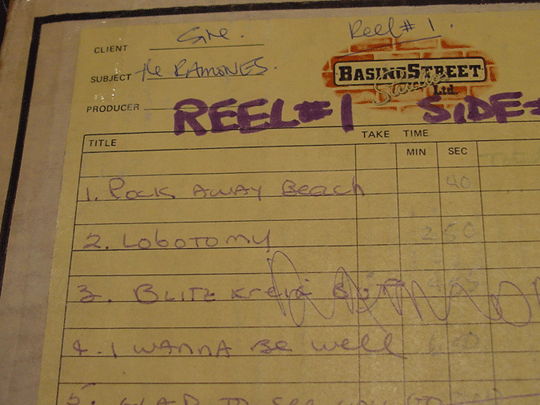 CLIENT Sire. Reel #1.
SUBJECT The RAMONES.
BASING STREET
Studios
Ltd.
PRODUCER
REEL #1 SIDE
TITLE TAKE TIME
MIN SEC
1. ROCK AWAY BEACH 40
2. LOBOTOMY 2 50
3. BLITZ KREIG BOP
4. I WANNA BE WELL
5. GLAD TO SEE YOU GO